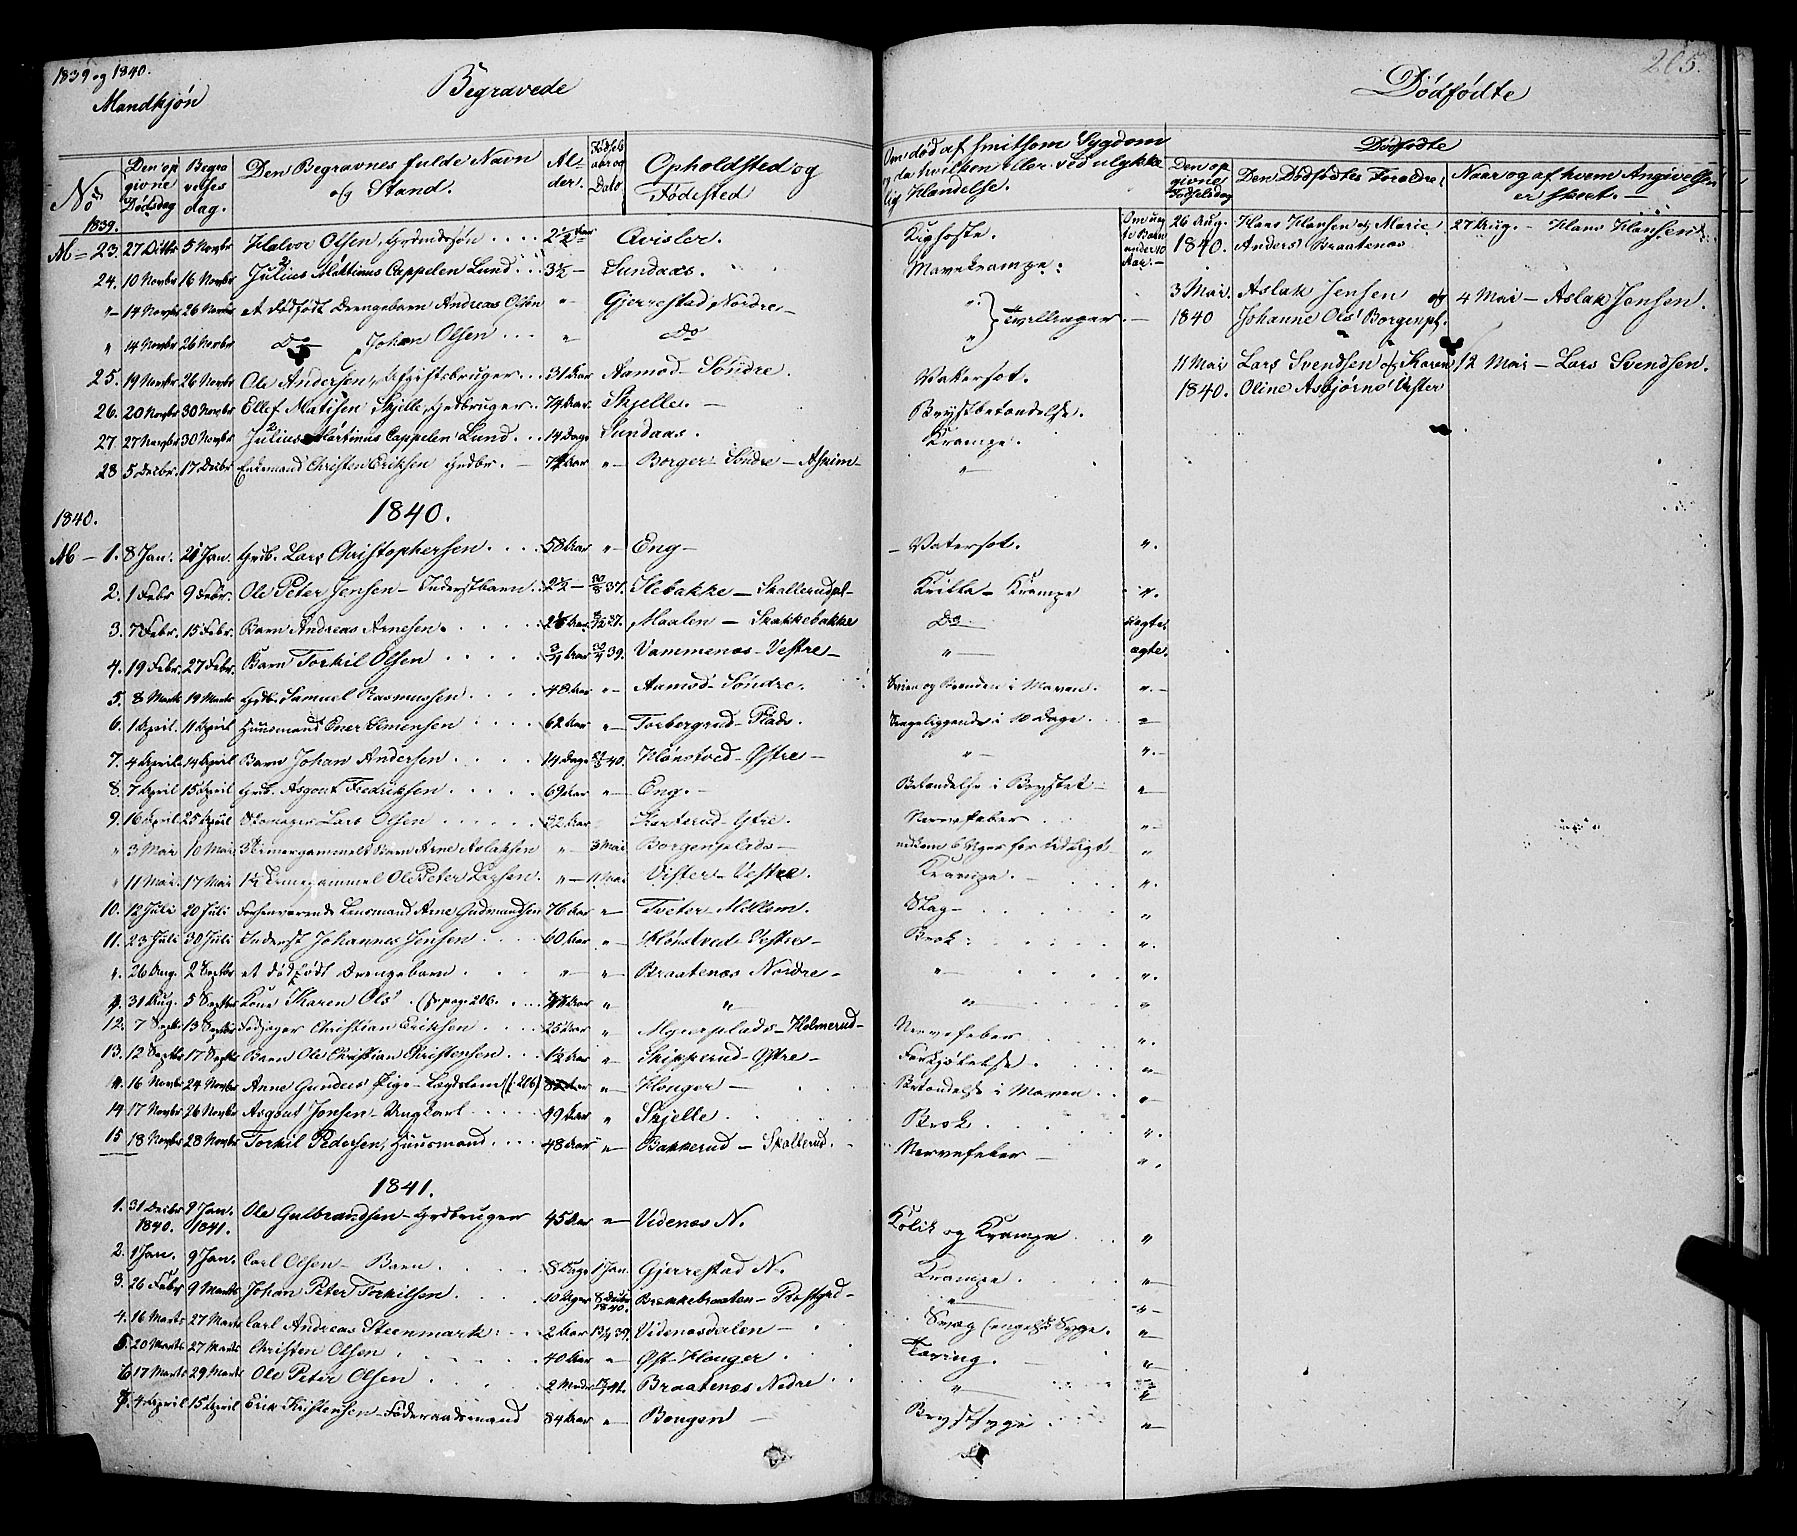 1839 og 1840.
Mandkjøn
Begravede
Dødfødte
205.
No
Den opgivne Dødsdag
Begravelses dag.
Den Begravnes fulde Navn og Stand.
Alder.
Fødsels aar og Dato
Opholdsted og Fødested
Om død af smitsom Sygdom og da hvilken eller ved ulykkelig Hændelse.
Dødfødte
Den opgivne Fødselsdag
Den Dødfødtes Forældre
Naar og af hvem Angivelsen er skeet.
1839.
23. 27 Octbr 5 Novbr Halvor Olsen, Grdmdssøn 2½ Aar Avisler. Kighoste.
24. 10 Novbr 16 Novbr Julius Martinus Cappelen Lund 3½ — Sundaas. Mavekrampe.
" 14 Novbr 26 Novbr et dødfødt Drengebarn Andreas Olsen " Gjerrestad Nordre — Tvillinger —
" 14 Novbr 26 Novbr Do Johan Olsen " Do "
25. 19 Novbr 26 Novbr Ole Andersen, Afgiftsbruger 31 Aar Aamod – Søndre. Vatersot.
26. 20 Novbr 30 Novbr Ellef Matisen Skjelle, Grdbruger 74 Aar. Skjelle. — Brystbetændelse.
27. 27 Novbr 30 Novbr Julius Martinus Cappelen Lund 14 Dage Sundaas. Krampe.
28 5 Decbr 17 Decbr Enkemand Christen Eriksen Grdbr. 74 Aar " Borger – Søndre – Askim – "
26 Aug. 1840. Hans Hansen og Marie Anders' Braatenæs 27 Aug. – Hans Hansen
3 Mai 1840 Aslak Jensen og Johanne Ols' Borgenpl. 4 Mai – Aslak Jensen.
11 Mai 1840. Lars Svendsen og Karen Oline Asbjørns' Vister 12 Mai – Lars Svendsen.
1840.
1840.
1. 8 Jan. 21 Jan. Grdb. Lars Christophersen 58 Aar " Eng – Vatersot. "
2. 1 Febr 9 Febr. Ole Peter Jensen – Inderstbarn 2½ — 30/8 37. Slebakke – Skallerudpl – Krilla – Krampe "
3. 7 Febr. 15 Febr. Barn Andreas Arnesen. Maalen – Skakkebakke Do uægte
4. 19 Febr. 27 Febr. Barn Torkil Olsen ¾ Aar 39. Vammenæs – Vestre – " ægte.
5. 8 Marts 19 Marts Grdb. Samuel Rasmussen 40 Aar " Aamod – Søndre. Svien og Brænden i Maven. "
6. 1 April. 11 April Huusmand Ener Simensen 62 Aar " Torbergrud – Plads. Sengeliggende i 10 Dage "
7. 4 April 14 April Barn Johan Andersen 14 Dage 40. Klønstved – Østre – " "
8. 7 April 15 April Grdb. Asgout Fredriksen 69 Aar " Eng. – Betændelse i Brystet – "
9. 16 April 25 April Skomager Lars Olsen 32 Aar Karterud – Ytre. Nervefeber "
" 3 Mai 10 Mai 3 Timergammelt Barn Arne Aslaksen " 3 Mai Borgenplads – udkom 6 Uger for tidligt – "
" 11 Mai 17 Mai 1½ Timegammel Ole Peter Larsen. " 11 Mai Vister – Vestre Krampe. "
10. 12 Juli 20 Juli Forhenværende Lensmand Arne Gudmundsen 76 Aar " Tveter – Mellem. Slag – "
11. 23 Juli 30 Juli Inderst Johannes Jensen 60 Aar " Klønstved – Vestre – Brok "
" 26 Aug. 2 Septbr et dødfødt Drengebarn " " Braatenæs Nordre – " "
31 Aug. 5 Septbr Kone Karen Ols' (Se pag: 206. " " " "
12. 7 Septbr 13 Septbr Fodjæger Christian Eriksen 25 Aar " Myrerplads – Holmerud – Nervefeber "
13. 12 Septbr 17 Septbr Barn Ole Christian Christensen 1½ Aar " Skipperud – Østre – Forkjølelse. "
16 Novbr 24 Novbr Anne Gunders' Pige – Lægdslem (S. 206) " Houger – Betændelse i Maven "
14 17 Novbr 26 Novbr Asgout Jensen – Ungkarl 49 Aar " Skjelle Brok "
15 18 Novbr 28 Novbr Torkil Pedersen, Huusmand 48 Aar " Bakkerud – Skallerud. Nervefeber – "
1841.
1. 31 Decbr 1840. 9 Jan. 1841. Ole Gulbrandsen – Grdbruger 45 Aar " Videnæs N. Kolik og Krampe "
2. 1 Jan. 9 Jan. Carl Olsen – Barn. 8 Dage 1 Jan. Gjerrestad N. Krampe "
3. 26 Febr 9 Marts Johan Peter Torkilsen 10 Uger 8 Decbr 1840. Brekkebraaten – " "
4. 16 Marts 27 Marts Carl Andreas Steenmark 2 Aar 39. Videnæsdalen – Svæg (engelsk Syge. "
5. 20 Marts 27 Marts Christen Olsen 40 Aar " Øst – Houger Tæring. "
6 17 Marts 29 Marts Ole Peter Olsen 2 Mndr 41. Braatenæs Nedre " "
7. 4 April 15 April Erik Kristensen – Føderaadsmand 84 Aar " Bongen – Brystsyge "